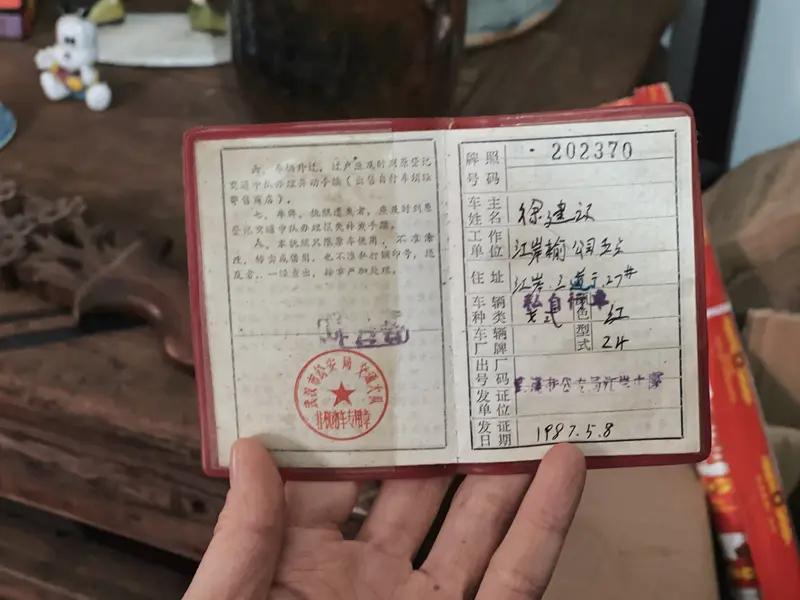 六、车辆外迁、过户应及时到原登记
交通中队办理异动手续（出售自行车须经
寄售商店）。
七、车牌、执照遗失者，应及时到原
登记交通中队办理挂失补发手续。
八、本执照只限原车使用，不准涂
改、转卖或借用，也不准私打钢印号，违
反者，一经查出，按章严加处理。
武汉市公安局交通十队
非机动车专用章
牌照号码 202370
车主姓名 徐建
工作单位 江岸 公司
住址 江岸 27#
车辆种类 私自行车 式 颜色 红
车辆厂牌 型式 24
出厂号码
发证单位 武汉市公安局
发证日期 1987.5.8